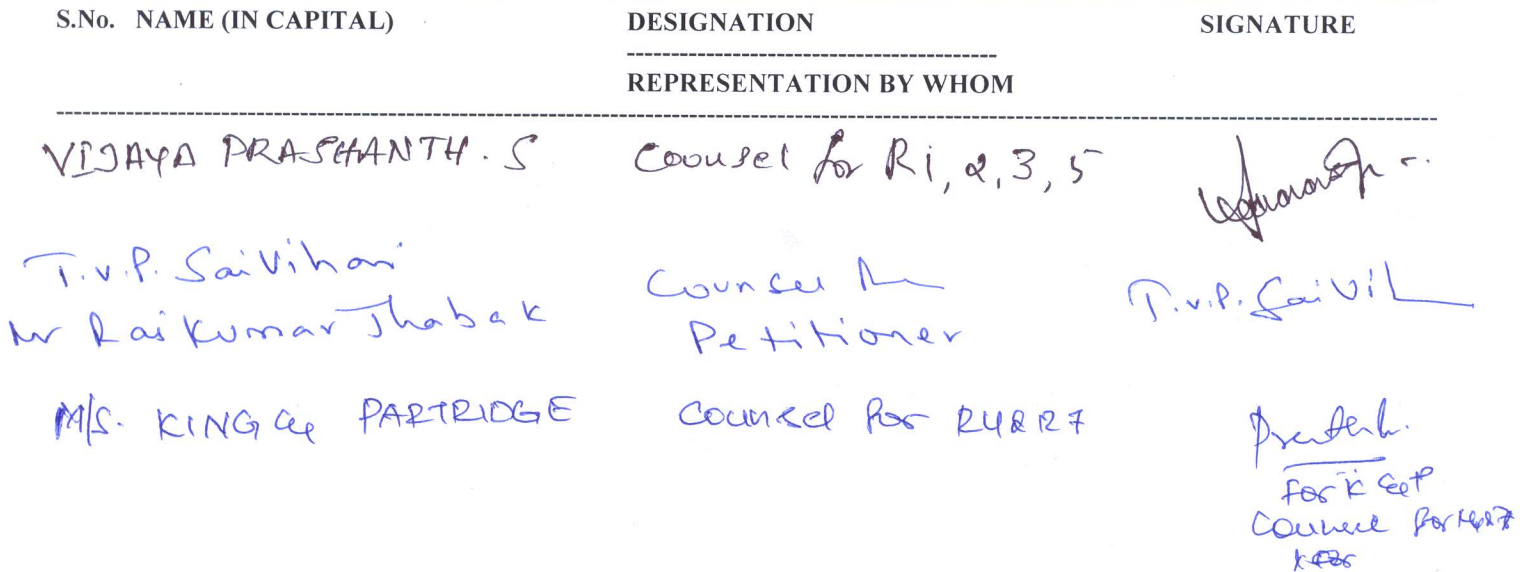 S.No. NAME (IN CAPITAL) DESIGNATION SIGNATURE
----------------------------------------
REPRESENTATION BY WHOM
VIJAYA PRASHANTH. S Counsel for R1, 2, 3, 5
T.V.P. Sai Vihari Counsel for T.V.P. Sai Vih
Mr Raj Kumar Jhabak Petitioner
M/S. KING & PARTRIDGE Counsel for R4 & R7
For K & P
Counsel for R4&R7